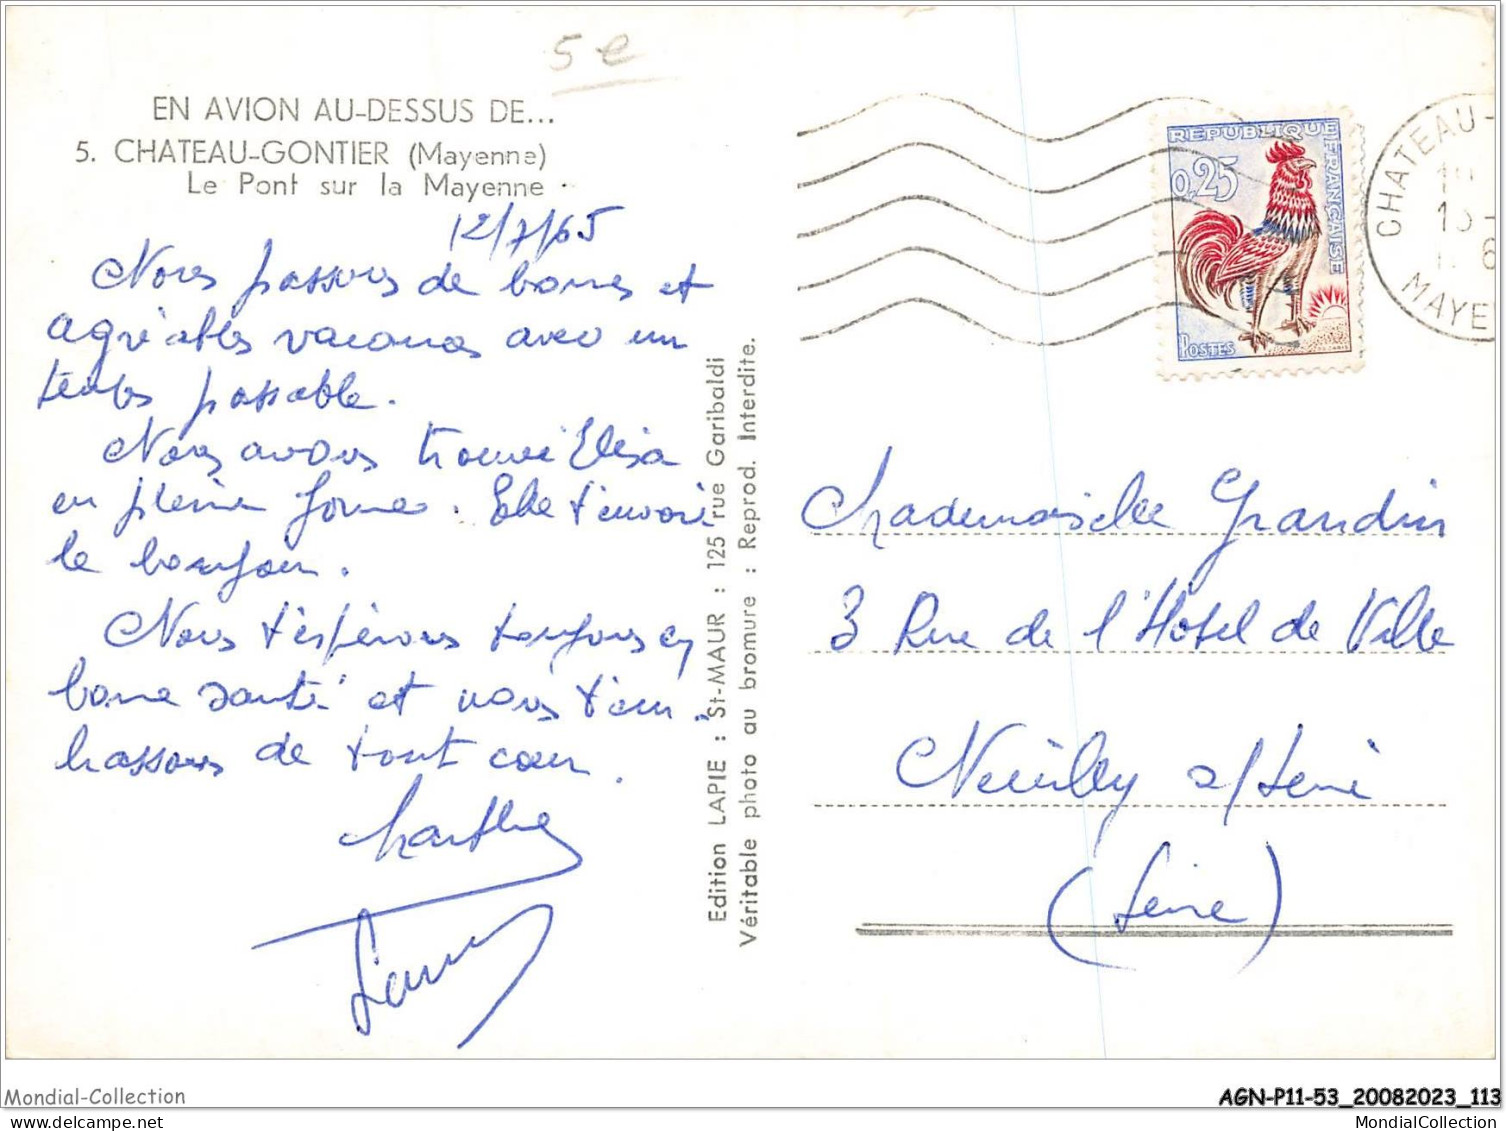 5 e
EN AVION AU-DESSUS DE...
5. CHATEAU-GONTIER (Mayenne)
Le Pont sur la Mayenne
12/7/65
Nous passons de bonnes et
agréables vacances avec un
temps passable.
Nous avons trouvé Elisa
en pleine forme. Elle t'envoie
le bonjour.
Nous t'espérons toujours en
bonne santé et nous t'em-
brassons de tout cœur.
Marthe
Edition LAPIE : St-MAUR : 125 rue Garibaldi
Véritable photo au bromure : Reprod. Interdite.
REPUBLIQUE FRANÇAISE
0,25
POSTES
CHATEAU-
MAYE
Mademoiselle Grandin
3 Rue de l'Hôtel de Ville
Neuilly s/Seine
(Seine)
Mondial-Collection
AGN-P11-53_20082023_113
MondialCollection